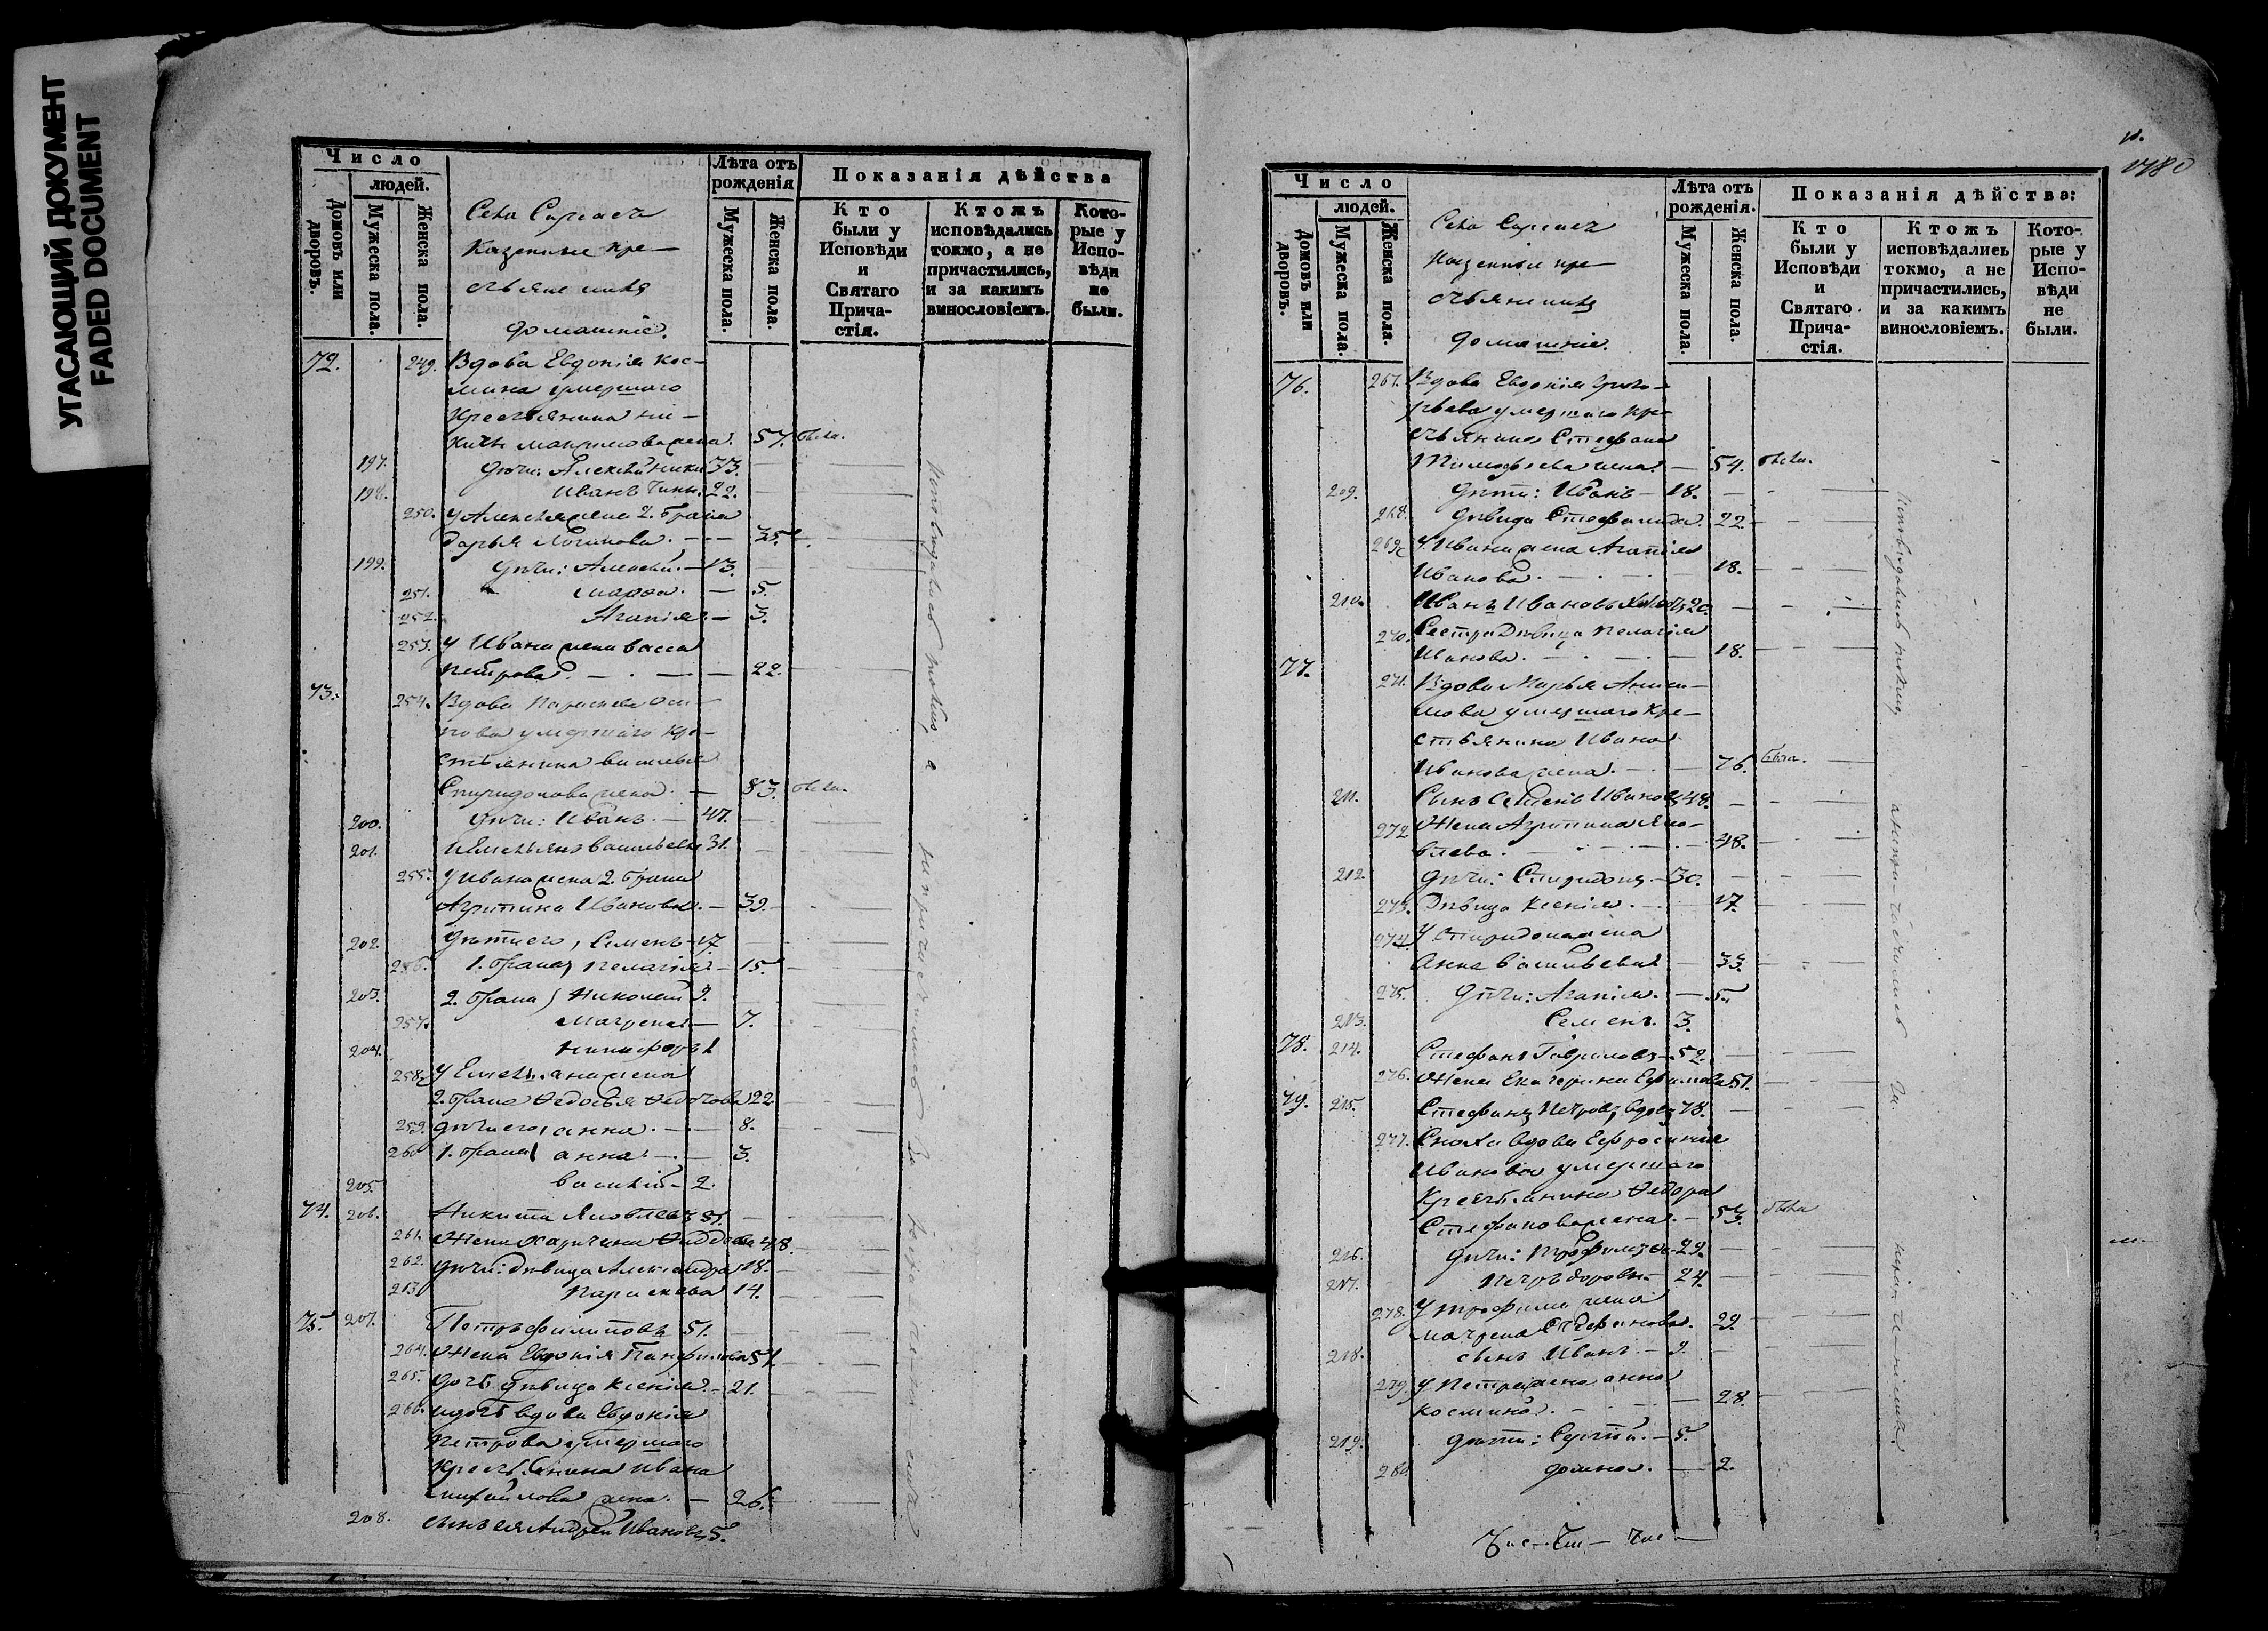 УГАСАЮЩИЙ ДОКУМЕНТ
FADED DOCUMENT
Число
людей.
Домовъ или дворовъ.
Мужеска пола.
Женска пола.
Лѣта отъ рожденія
Мужеска пола.
Женска пола.
Показанія дѣйства
Кто были у Исповѣди и Святаго Прича-стія.
Ктожъ исповѣдались токмо, а не причастились, и за какимъ винословіемъ.
Кото-рые у Испо-вѣди не были.
Села
Казенные кре-
стьяне
домашніе.
72. 249. Вдова Евдокія Кос-
мина умершаго
Крестьянина Ни-
киты жена. 57. была.
197. дѣти: Алексѣй 33.
198. Иванъ 22.
250. У Алексѣя жена 2. брака
Дарья 35.
199. дѣти: Алексѣй. 13.
251. Марѳа. 5.
252. Агапія 3.
253. У Ивана жена Васса
Петрова. 22.
73. 254. Вдова Параскева Оси-
пова умершаго кре-
стьянина Василья
Спиридонова жена. 83. была.
200. дѣти: Иванъ. 47.
201. Емельянъ Васильевы 31.
255. У Ивана жена 2. брака
Агрипина Иванова. 39.
202. дѣти его, Семенъ 17.
256. 1. брака Пелагія 15.
203. 2. брака Николай 9.
257. Матрена 7.
204. Никифоръ 1
258. У Емельяна жена
2. брака Ѳедосья Ѳедотова 22.
259. дѣти его, Анна. 8.
260 1. брака Анна 3.
205. Василій 2.
74. 206. Никита Яковлевъ 51.
261. Жена 48.
262. дѣти: дѣвица Александра 18.
263. Параскева 14.
75. 207. Петръ Филиповъ 51.
264. Жена Евдокія Панфилова 51.
265. дочь дѣвица Ксенія 21.
266. дочь вдова Евдокія
Петрова умершаго
Крестьянина Ивана
Михайлова жена. 26.
208. сынъ ея Андрей Ивановъ 5.
исповѣдались токмо, а не причастились
Число
людей.
Домовъ или дворовъ.
Мужеска пола.
Женска пола.
Лѣта отъ рожденія.
Мужеска пола.
Женска пола.
Показанія дѣйства:
Кто были у Исповѣди и Святаго Прича-стія.
Ктожъ исповѣдались токмо, а не причастились, и за какимъ винословіемъ.
Кото-рые у Испо-вѣди не были.
Села
Казенные кре-
стьяне
домашніе.
76. 267. Вдова Евдокія Григо-
рьева умершаго кре-
стьянина Стефана
Тимофеева жена. 54. была.
209. дѣти: Иванъ 18.
268. дѣвица Стефанида. 22
269. У Ивана жена Агапія
Иванова. 18.
210. Иванъ Ивановъ 20.
270. Сестра дѣвица Пелагія
Иванова. 18.
77. 271. Вдова Марья Аниси-
мова умершаго Кре-
стьянина Ивана
Иванова жена. 76. была.
211. Сынъ Семенъ Ивановъ 48.
272 Жена Агрипина Яко-
влева. 48.
212. дѣти: Спиридонъ. 30.
273. Дѣвица Ксенія. 17.
274. У Спиридона жена
Анна Васильева 33.
275. дѣти: Агапія. 5.
213. Семенъ. 3.
78. 214. Стефанъ Гавриловъ 52.
276. Жена Екатерина Ефимова 51.
79. 215. Стефанъ Петровъ, вдовъ 78.
277. Сноха вдова Ефросинія
Иванова умершаго
Крестьянина Ѳедора
Стефанова жена. 53. была
216. дѣти: Трофимъ 29.
217. Петръ Ѳедоровы 24.
278. У Трофима жена
Матрена Стефанова. 29.
218. сынъ Иванъ. 9.
279. У Петра жена Анна
Космина. 28.
219. дѣти: Сергѣй. 5.
280. Домна. 2.
исповѣдались токмо, а не причастились